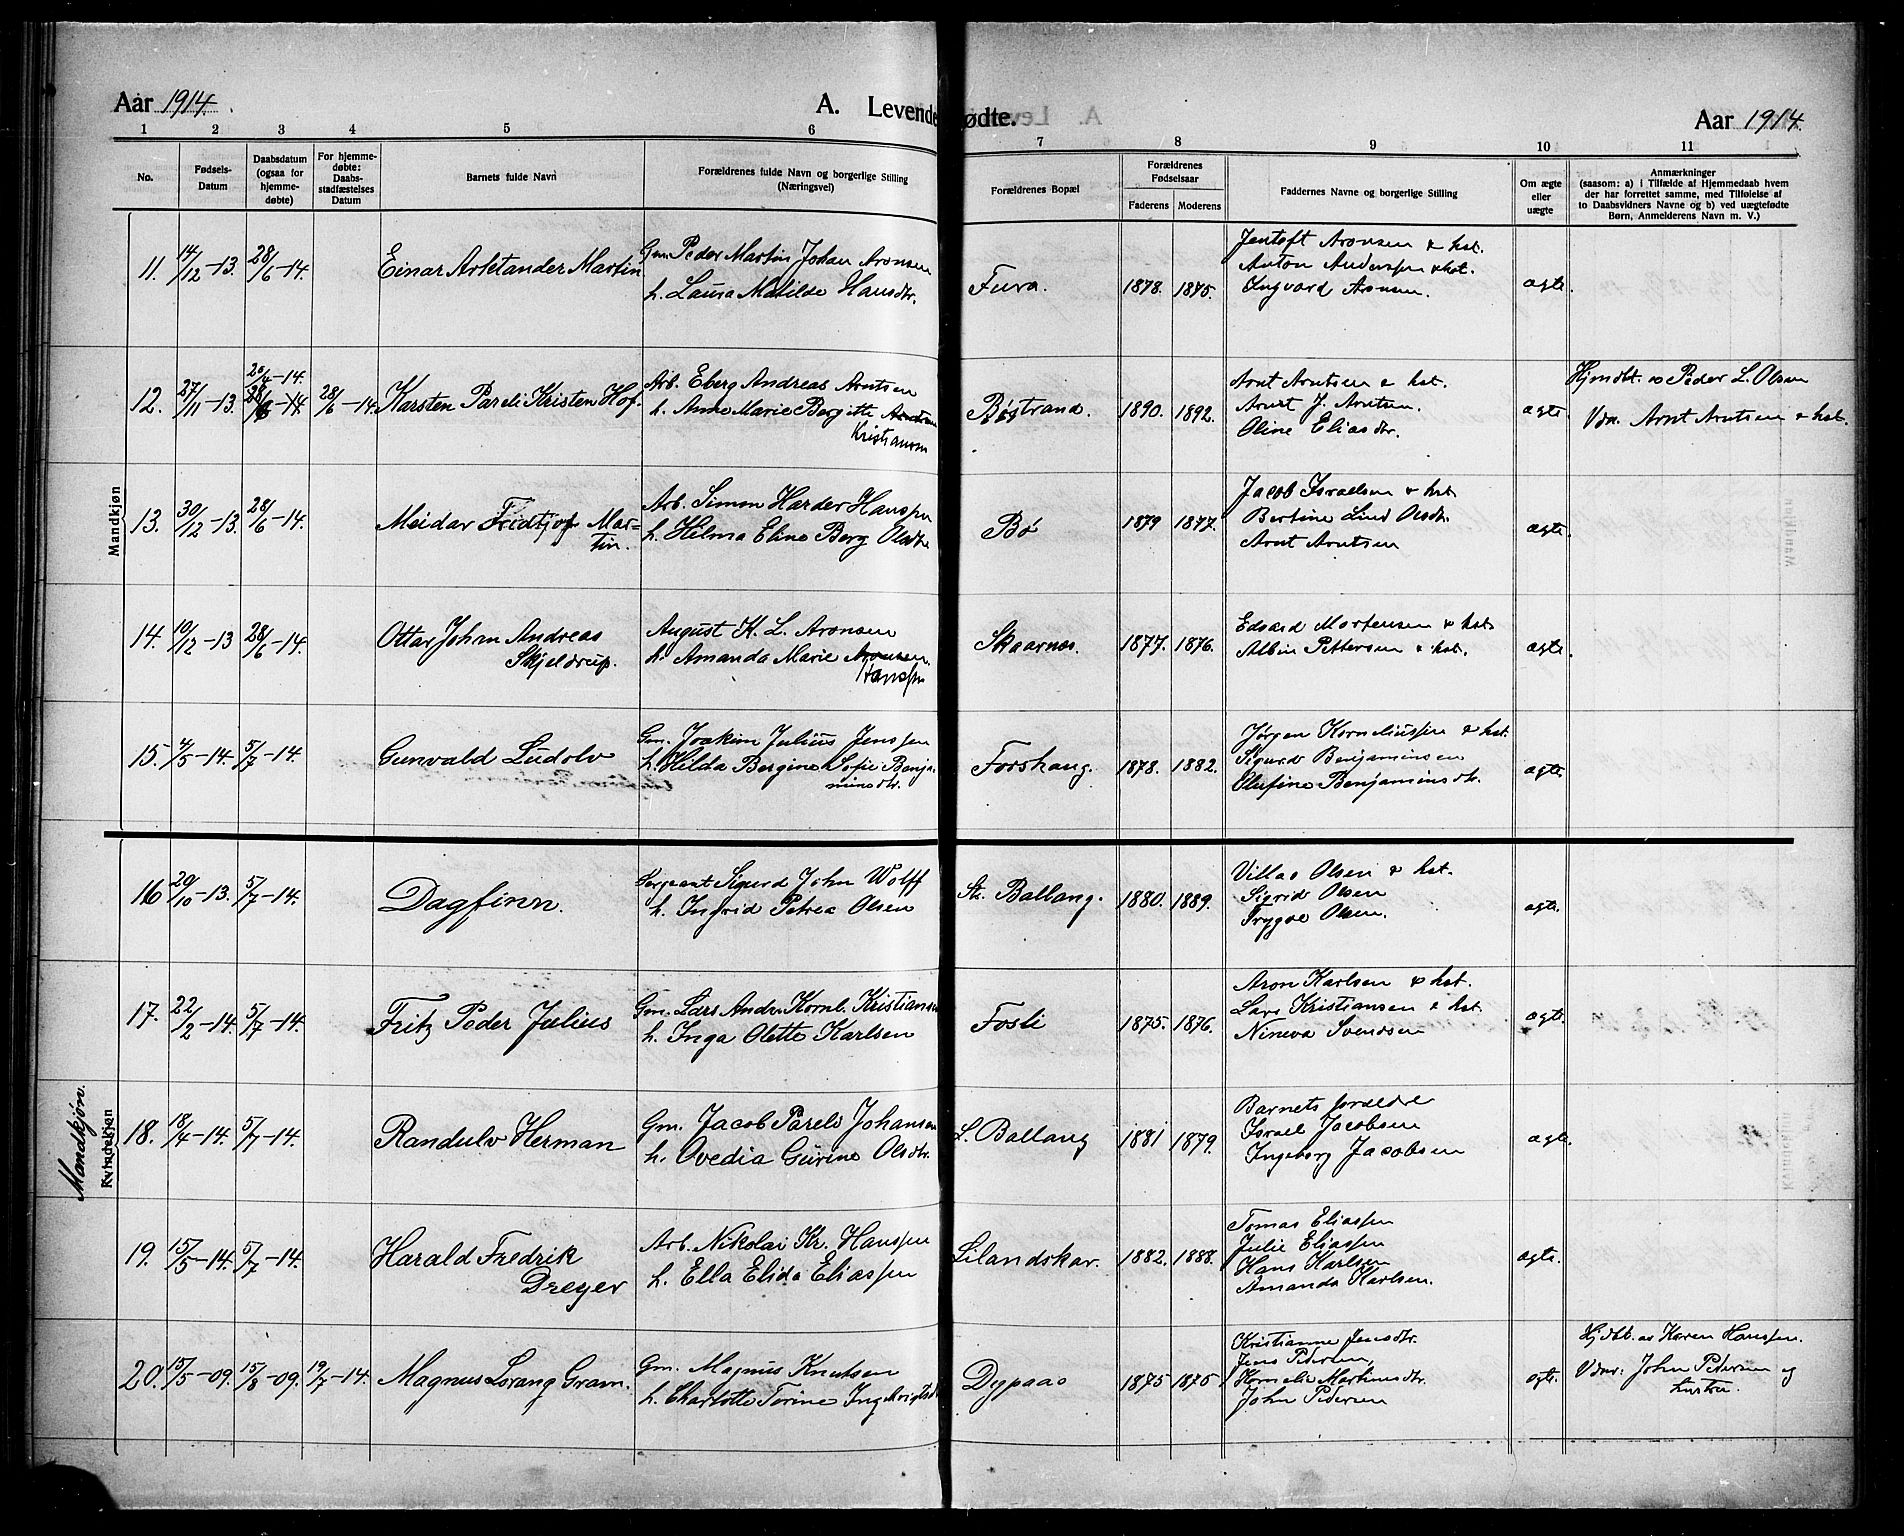 Aar 1914.
A. Levendefødte.
Aar 1914.
1 2 3 4 5 6 7 8 9 10 11
No.
Fødsels-
Datum
Daabsdatum
(ogsaa for
hjemme-
døbte)
For hjemme-
døbte:
Daabs-
stadfæstelses
Datum
Barnets fulde Navn
Forældrenes fulde Navn og borgerlige Stilling
(Næringsvei)
Forældrenes Bopæl
Forældrenes
Fødselsaar
Faderens Moderens
Faddernes Navne og borgerlige Stilling
Om ægte
eller
uægte
Anmærkninger
(saasom: a) i Tilfælde af Hjemmedaab hvem
der har forrettet samme, med Tilføielse af
to Daabsvidners Navne og b) ved uægtefødte
Børn, Anmelderens Navn m. V.)
Mandkjøn
11. 14/12-13. 28/6-14. Einar Arktander Martin
Gm. Peder Martin Johan Aronsen
h. Laura Matilde Hansdtr.
Fura. 1878. 1875.
Jentoft Aronsen & hst.
Anton Anderssen & hst.
Ingvard Aronsen.
ægte.
12. 27/11-13. 26/4-14. 28/6-14. 28/6-14. Karsten Pareli Kristen Hof.
Arb. Eberg Andreas Arntsen
h. Anne Marie Bergitte Arntsen
Kristiansen
Bøstrand. 1890. 1892.
Arnt Arntsen & hst.
Arnt J. Arntsen.
Oline Eliasdtr.
ægte
Hjmdbt. av Peder L. Olsen
Vdn. Arnt Arntsen & hst.
13. 30/12-13. 28/6-14. Meidar Fridtjof Mar-
tin.
Arb. Simon Harder Hanssen
h. Helma Eline Berg Olsdtr
Bø 1879 1877.
Jacob Israelsen & hst
Bertine Lind Olsdtr.
Arnt Arntsen
ægte.
14. 10/12-13 28/6-14. Ottar Johan Andreas
Skjeldrup.
August K. L. Aronsen
h. Amanda Marie Aronsen.
Hanssen
Skaarnes. 1877. 1876.
Edvard Mortensen & hst
Albin Pettersen & hst.
ægte.
15. 4/5-14. 5/7-14. Gunvald Ludolv
Gm. Joakim Julius Jenssen
h. Hilda Bergine Sofie Benja-
minsdtr.
Forshaug. 1878. 1882.
Jørgen Korneliussen & hst.
Sigurd Benjaminsen
Olufine Benjaminsdtr.
ægte.
Mandkjøn.
Kvindekjøn
16 20/10-13. 5/7-14. Dagfinn.
Sergeant Sigurd John Wolff
h. Ingrid Petrea Olsen
St. Ballang. 1880. 1889.
Villas Olsen & hst.
Sigrid Olsen
Trygve Olsen.
ægte.
17. 22/2-14. 5/7-14. Fritz Peder Julius
Gm. Lars Andr. Kornl. Kristiansen
h. Inga Olette Karlsen
Fosli 1875. 1876.
Aron Karlsen & hst.
Lars Kristiansen & hst.
Nineva Svendsen
ægte.
18. 18/4-14. 5/7-14. Randulv Herman
Gm. Jacob Pareli Johansen
h. Ovedia Gurine Olsdtr.
L. Ballang 1881 1879.
Barnets forældre
Israel Jacobsen
Ingeborg Jacobsen
ægte.
19. 15/5-14. 5/7-14. Harald Fredrik
Dreyer
Arb. Nikolai Kr. Hanssen
h. Ella Elida Eliassen
Lilandskar. 1882. 1888.
Tomas Eliassen
Julie Eliassen
Hans Karlsen
Amanda Karlsen.
ægte.
20. 15/5-09. 15/8-09. 19/7-14. Magnus Lorang Gram.
Gm. Magnus Knutsen
h. Charlotte Torine Ingebrigtsdtr
Dypaas 1875 1875
Kristianne Jensdtr.
Jens Pedersen,
Kornelie Martinusdtr.
John Pedersen
ægte.
Hjdbt. av Karen Hanssen.
Vdnr: John Pedersen og
hustru.